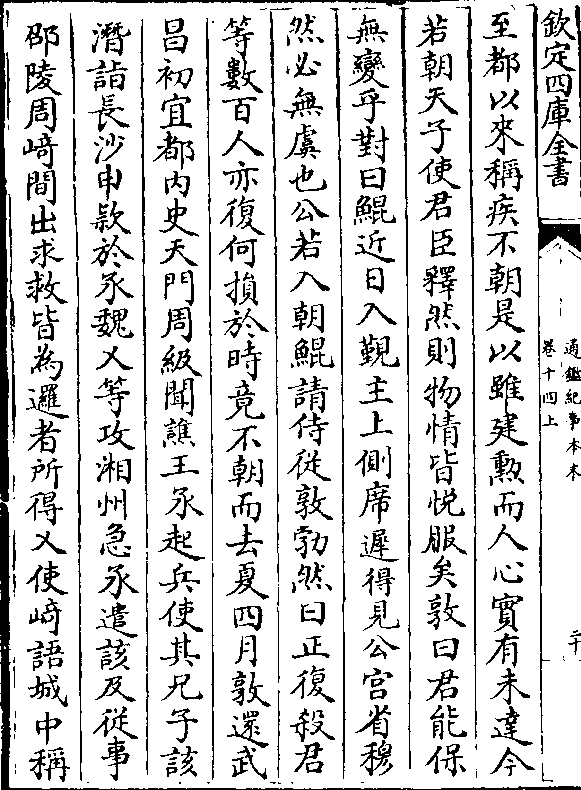 欽定四庫全書
通鑑紀事本末
卷十四上
二十
至都以來稱疾不朝是以雖建勲而人心實有未達今
若朝天子使君臣釋然則物情皆悦服矣敦曰君能保
無變乎對曰鯤近日入覲主上側席遲得見公宮省穆
然必無虞也公若入朝鯤請侍從敦勃然曰正復殺君
等數百人亦復何損於時竟不朝而去夏四月敦還武
昌初宜都内史天門周級聞譙王氶起兵使其兄子該
潛詣長沙申款於氶魏乂等攻湘州急氶遣該及從事
邵陵周﨑間出求救皆為邏者所得乂使﨑語城中稱